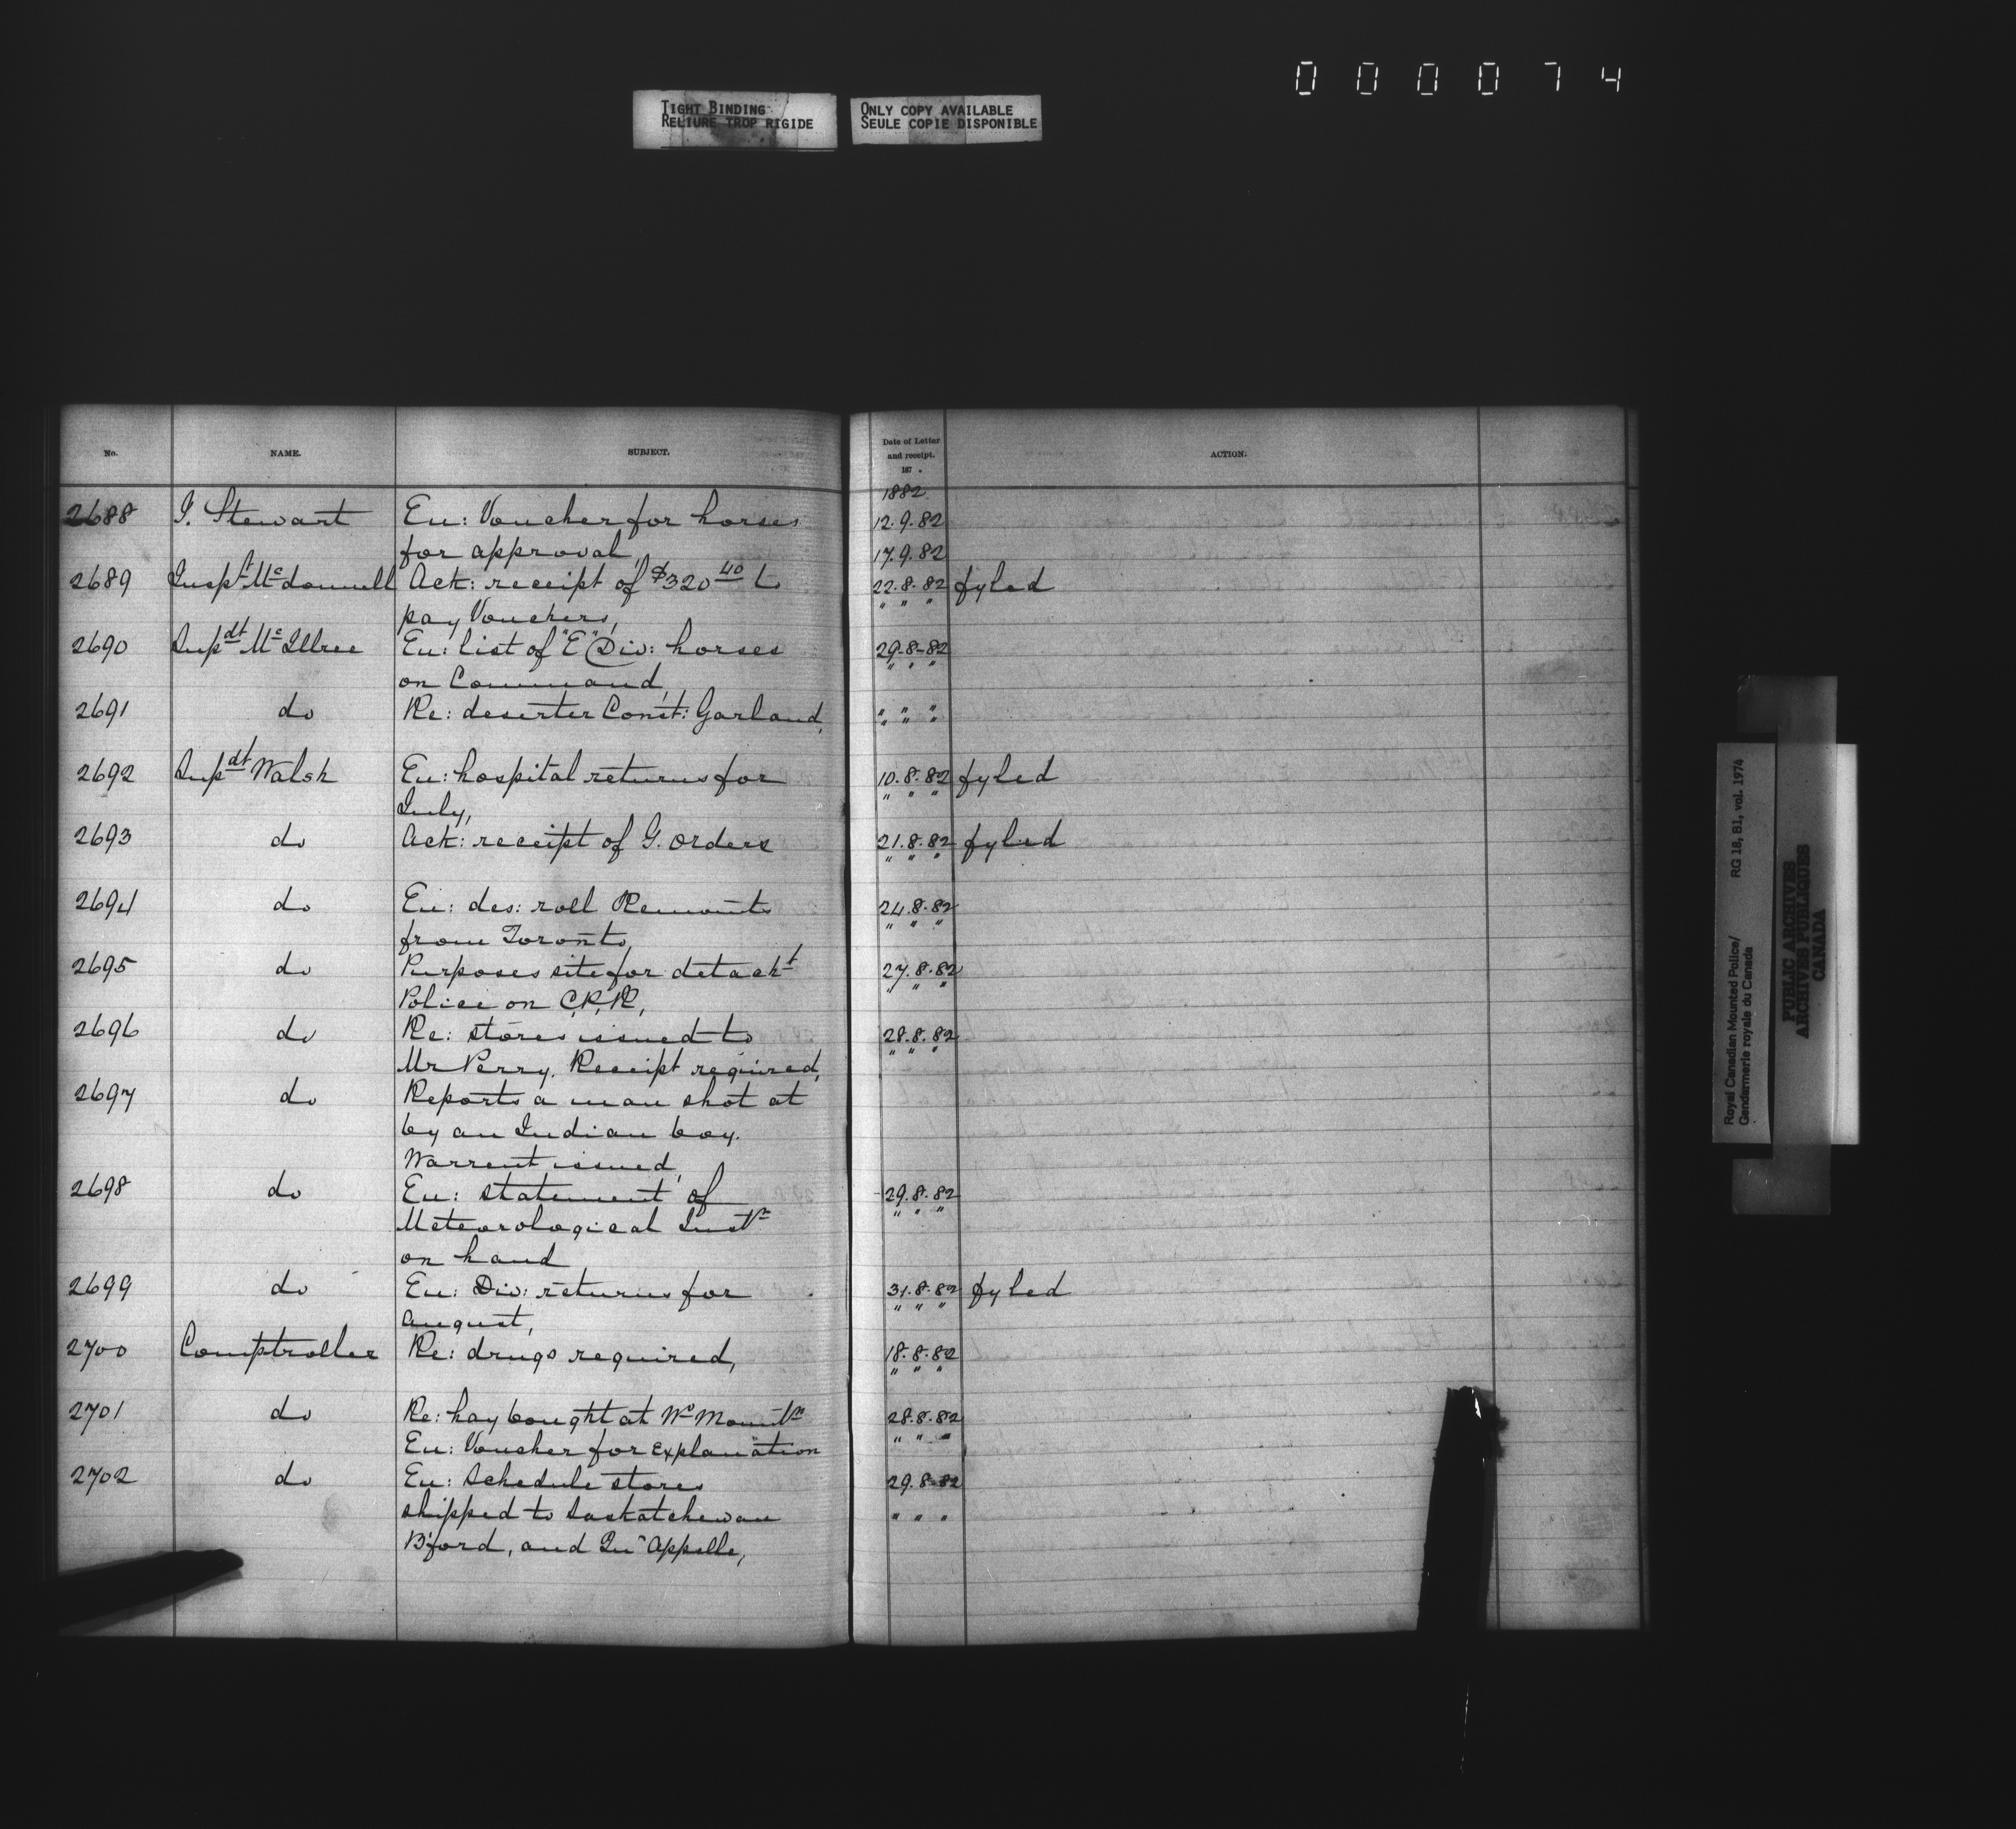 000074
TIGHT BINDING
RELIURE TROP RIGIDE
ONLY COPY AVAILABLE
SEULE COPIE DISPONIBLE
No. NAME. SUBJECT. Date of Letter and receipt. 187 . ACTION.
1882
2688 J. Stewart En: Voucher for horses 12.9.82
for approval, 17.9.82
2689 Inspt Mcdonnell Ack: receipt of $320 40 to 22.8.82 fyled
pay Vouchers, " " "
2690 Supdt McIllree En: list of "E" Div: horses 29-8-82
on Command, " " "
2691 do Re: deserter Const: Garland, " " "
" " "
2692 Supdt Walsh En: hospital returns for 10.8.82 fyled
July, " " "
2693 do Ack: receipt of G. Orders 21.8.82 fyled
" " "
2694 do En: des: roll Remounts 24.8.82
from Toronto, " " "
2695 do Purposes site for detacht 27.8.82
Police on C.P.R, " " "
2696 do Re: stores issued to 28.8.82
Mr Perry. Receipt required, " " "
2697 do Reports a man shot at
by an Indian boy.
Warrent issued,
2698 do En: statement of 29.8.82
Meteorological Instrs " " "
on hand
2699 do En: Div: returns for 31.8.82 fyled
August, " " "
2700 Comptroller Re: drugs required, 18.8.82
" " "
2701 do Re: hay bought at Wd Mountn 28.8.82
En: Voucher for explanation " " "
2702 do En: Schedule stores 29.8.82
shipped to Saskatchewan " " "
B'ford, and Qu'Appelle,
Royal Canadian Mounted Police/ RG 18, B1, vol. 1974
Gendarmerie royale du Canada
PUBLIC ARCHIVES
ARCHIVES PUBLIQUES
CANADA